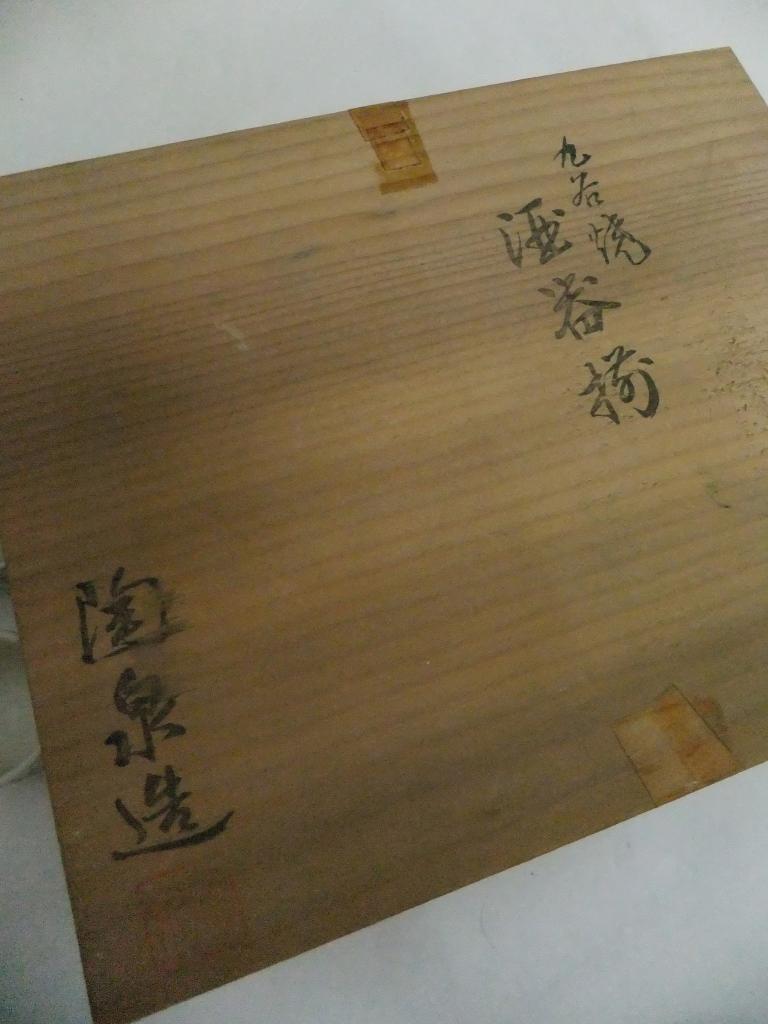 九谷焼
酒器揃
陶泉造